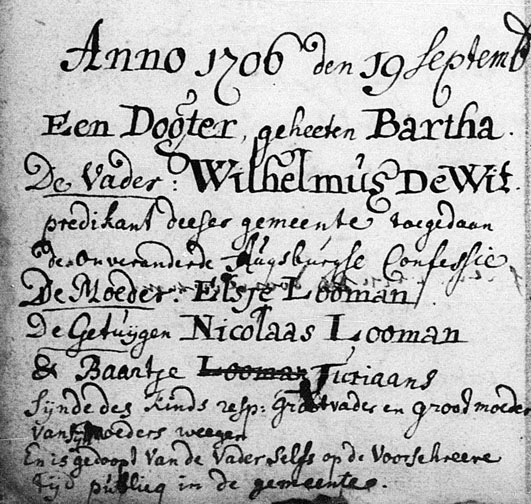 Anno 1706 den 19 Septemb
Een Dogter, geheeten Bartha.
De Vader: Wilhelmus De Wit.
predikant deeser gemeente toegedaan
der onveranderde Augsburgse Confessie
De Moeder: Elsje Looman
De Getuijgen Nicolaas Looman
& Baantje Looman Juriaans
Sijnde des kinds resp: Grootvader en grootmoeder
van moeders weegen
En is gedoopt van de Vader selfs op de Voorschreeve
tijd publieq in de gemeente.